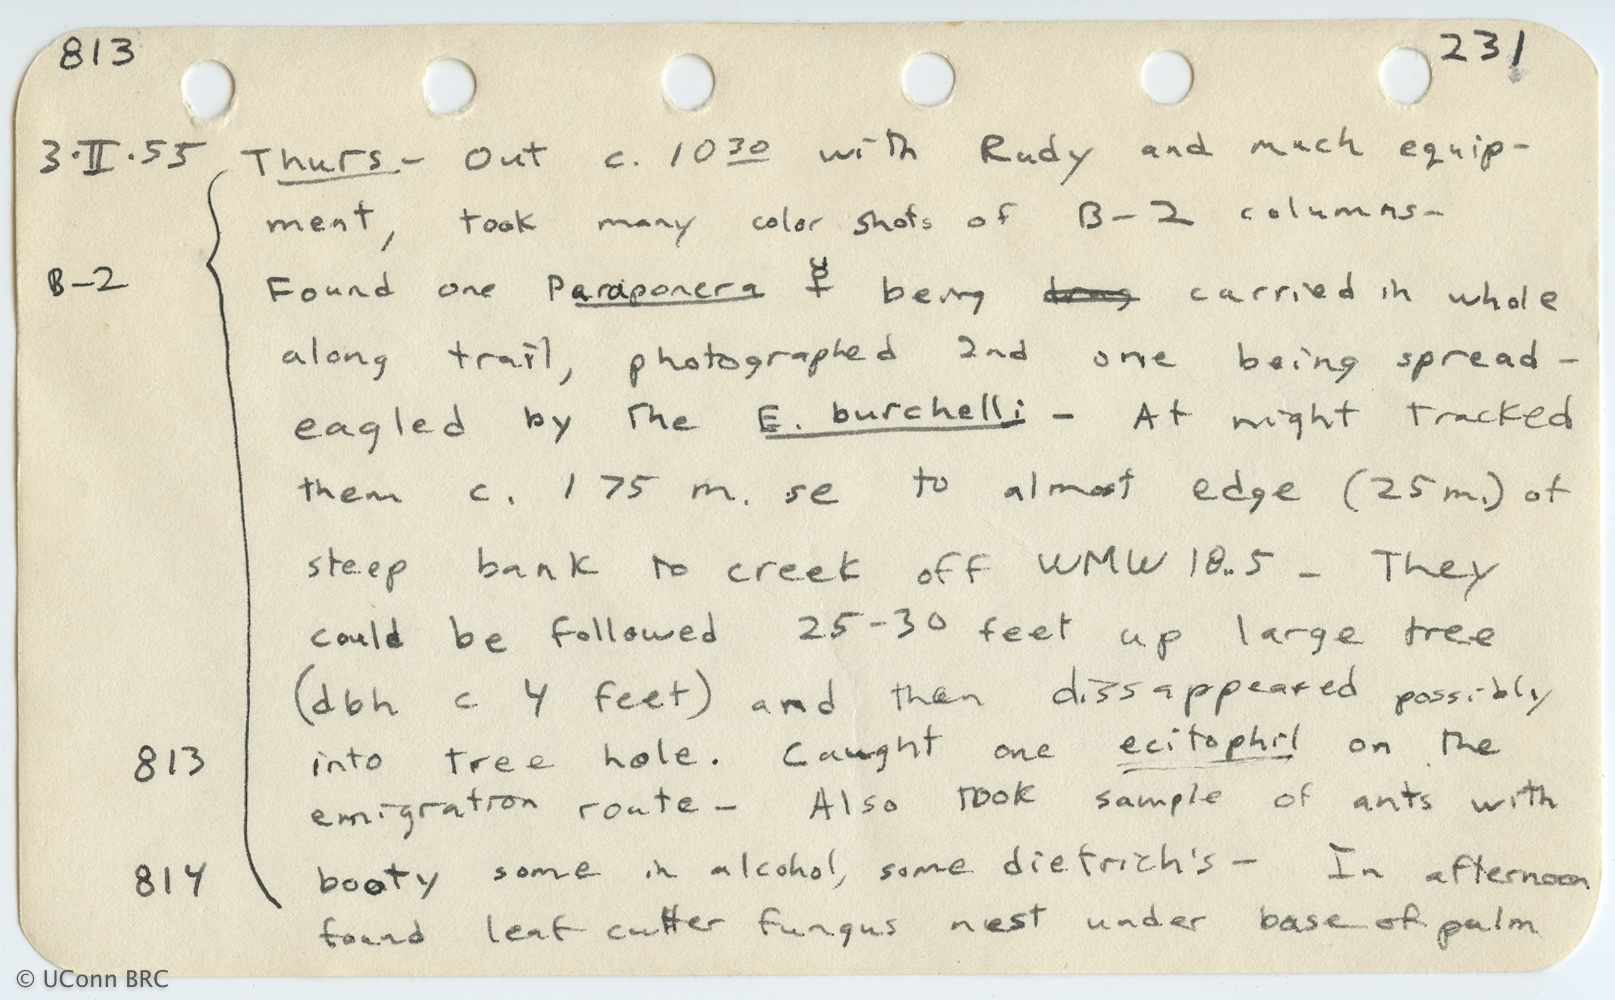 813 231
3·II·55 Thurs- Out c. 10 30 with Rudy and much equip-
ment, took many color shots of B-2 columns-
B-2 Found one Paraponera ☿ being drag carried in whole
along trail, photographed 2nd one being spread-
eagled by the E. burchelli - At night tracked
them c. 175 m. se to almost edge (25m.) of
steep bank to creek off WMW 18.5 - They
could be followed 25-30 feet up large tree
(dbh c 4 feet) and then dissappeared possibly
813 into tree hole. Caught one ecitophil on the
emigration route - Also took sample of ants with
814 booty some in alcohol, some dietrich's - In afternoon
found leaf cutter fungus nest under base of palm
© UConn BRC